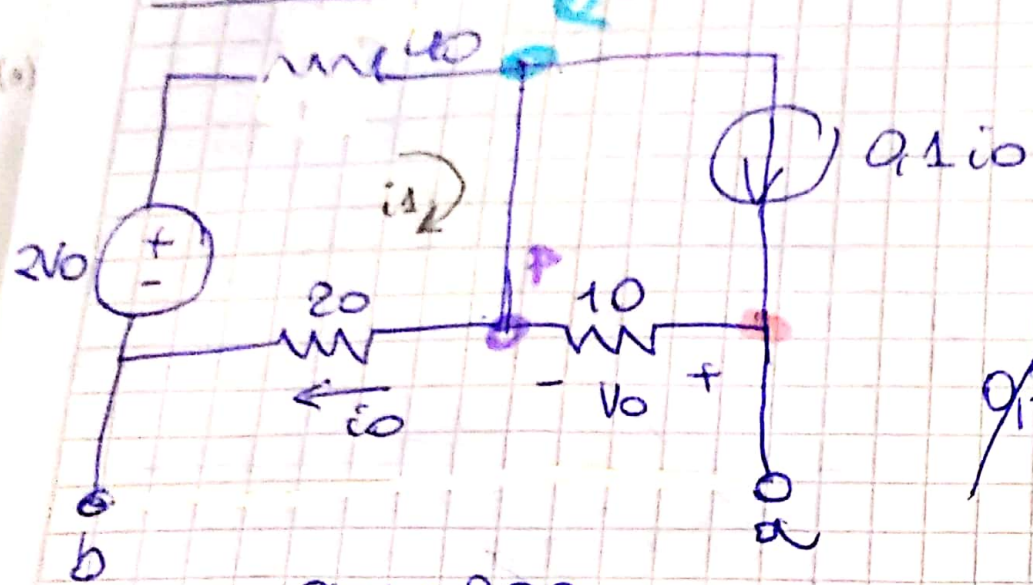 40
0,1 io
i1
2Vo
P
20
10
+
-
- Vo +
io
b
a